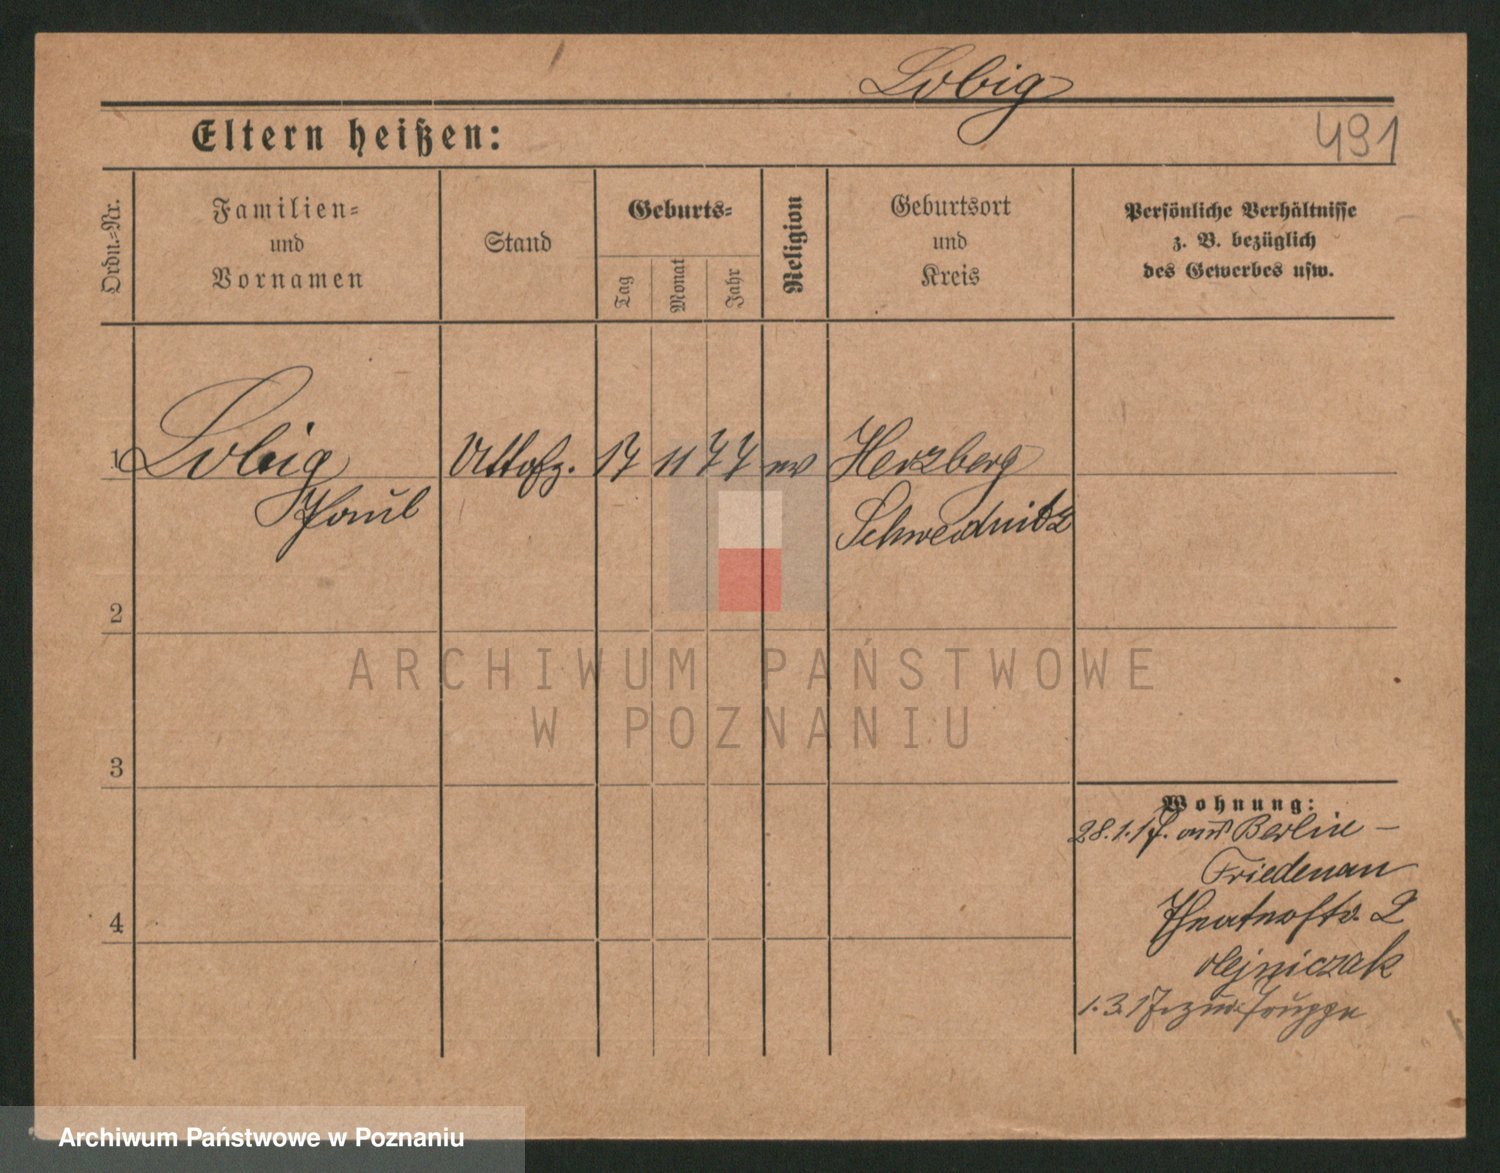 Lobig
491
Eltern heißen:
Ordn.=Nr.
Familien=
und
Vornamen
Stand
Geburts=
Tag
Monat
Jahr
Religion
Geburtsort
und
Kreis
Persönliche Verhältnisse
z. B. bezüglich
des Gewerbes usw.
1 Lobig 17 11 77 ev Herzberg
Paul Schweidnitz
2
3
4
Wohnung:
28.1.17. aus Berlin –
Friedenau
Theaterstr. 2
Olejniczak
1.3.17. zur Truppe
ARCHIWUM PAŃSTWOWE
W POZNANIU
Archiwum Państwowe w Poznaniu